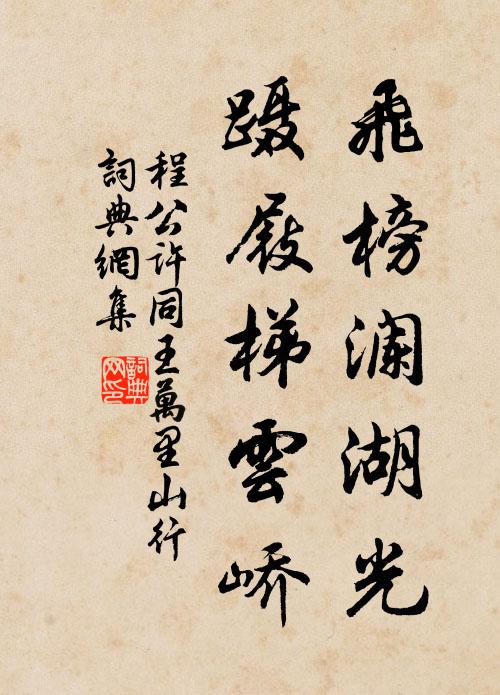 飛榜澜湖光
蹑屐梯雲峤
程公許同王萬里山行
詞典網集
詞典網印